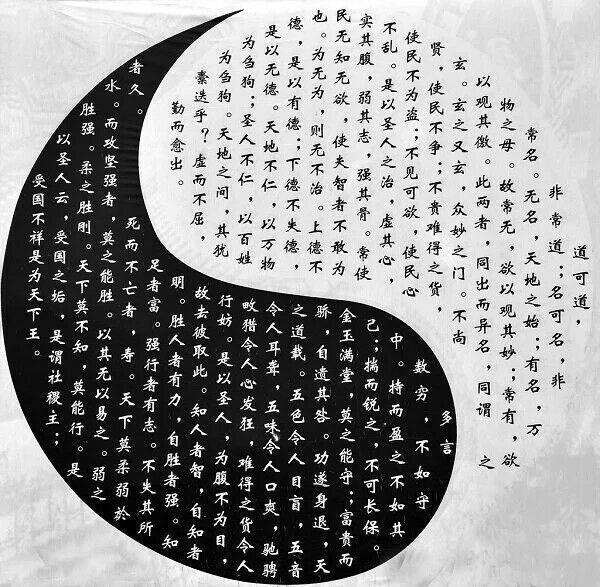 道可道，
非常道；名可名，非
常名。无名，天地之始；有名，万
物之母。故常无，欲以观其妙；常有，欲
以观其徼。此两者，同出而异名，同谓 之
玄。玄之又玄，众妙之门。不尚
贤，使民不争；不贵难得之货，
使民不为盗；不见可欲，使民心
不乱。是以圣人之治，虚其心，
实其腹，弱其志，强其骨。常使
民无知无欲，使夫智者不敢为
也。为无为 则无不治。上德不
德，是以有德；下德不失德，
是以无德。天地不仁，以万物
为刍狗；圣人不仁，以百姓
为刍狗。天地之间，其犹
素选乎？虚而不屈，
勤而愈出。
多言
数穷，不如守
中。持而盈之不如其
己；揣而锐之，不可长保。
金玉满堂，莫之能守；富贵而
骄，自遗其咎。功遂身退，天
之道哉。五色令人目盲，五音
令人耳聋，五味令人口爽，驰骋
畋猎令人心发狂，难得之货令人
行妨。是以圣人，为腹不为目，
故去彼取此。知人者智，自知者
明。胜人者有力，自胜者强。知
足者富。强行者有志。不失其所
者久。死而不亡者，寿。天下莫柔弱於
水。而攻坚强者，莫之能胜。以其无以易之。弱之
胜强。柔之胜刚。天下莫不知，莫能行。是
以圣人云，受国之垢，是谓社稷主；
受国不祥是为天下王。